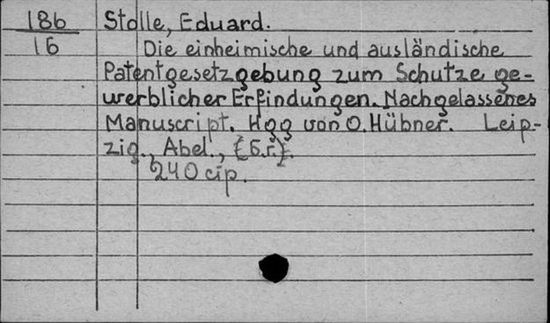 186 Stolle, Eduard.
16 Die einheimische und ausländische
Patentgesetzgebung zum Schutze ge-
werblicher Erfindungen. Nachgelassenes
Manuscript. Hgg von O. Hübner. Leip-
zig., Abel., {б.г.}.
240 стр.